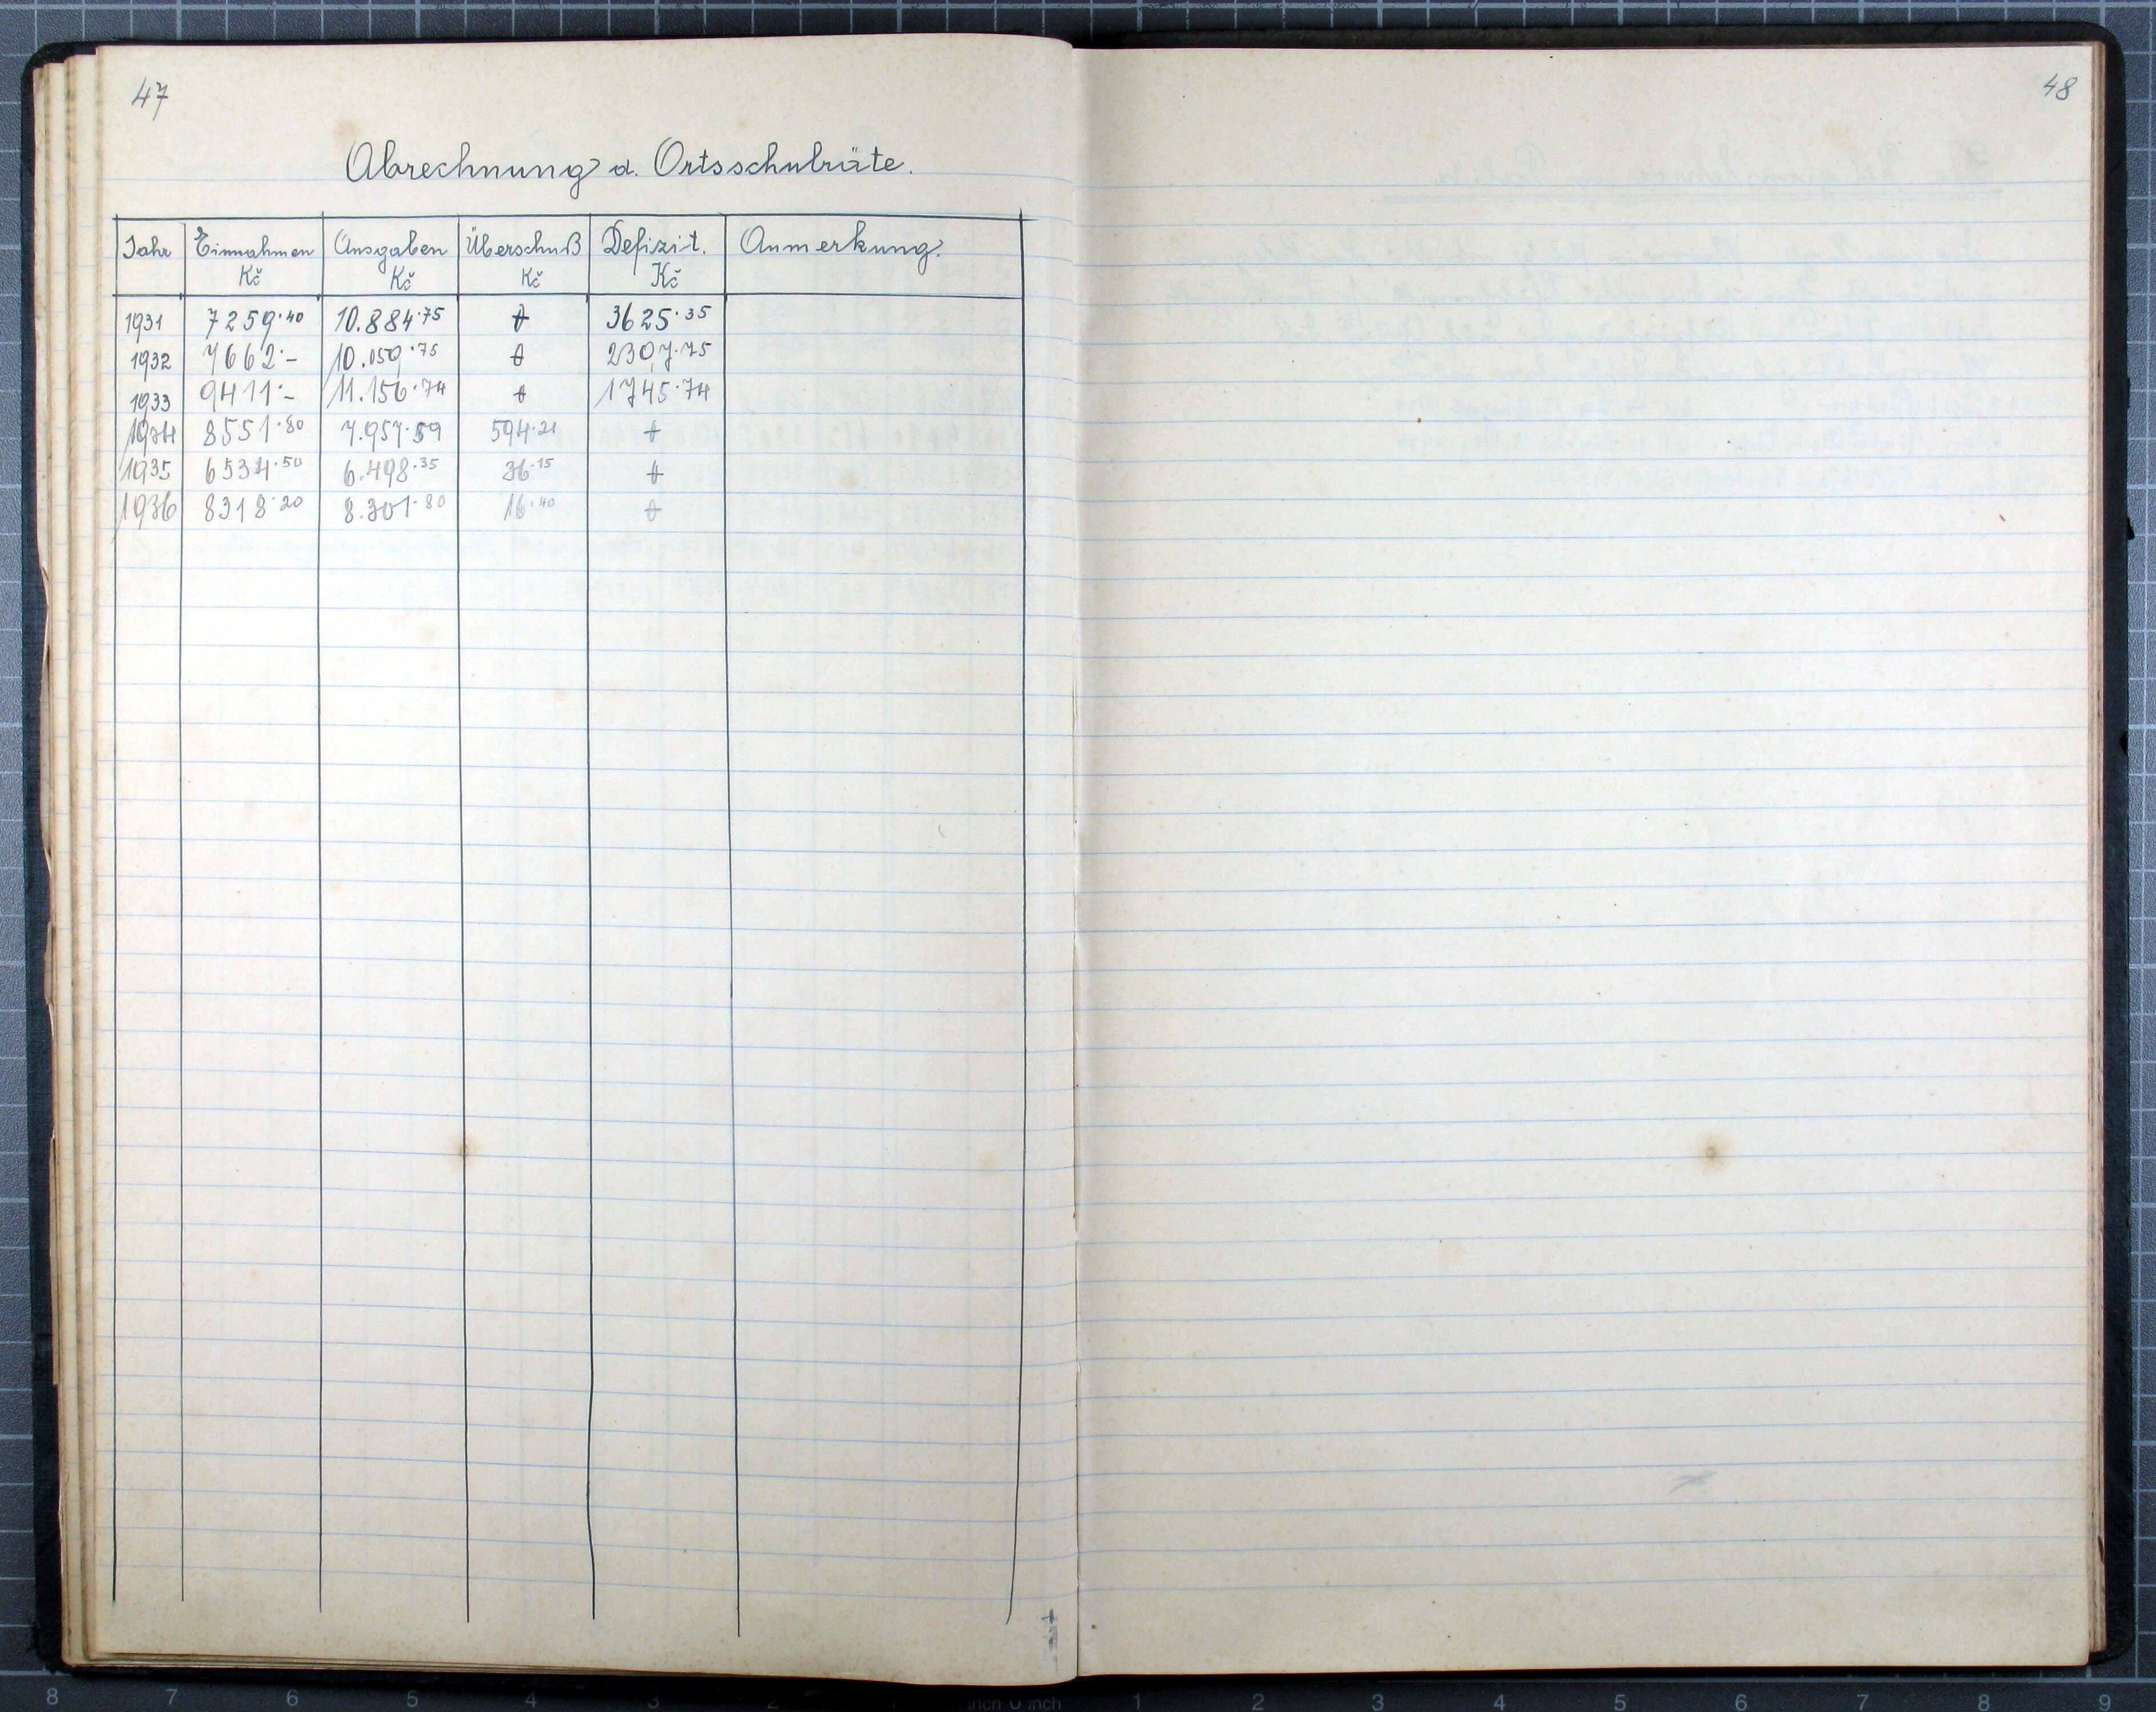 47
Abrechnung d. Ortsschulräte.
Jahr Einnahmen Kč Ausgaben Kč Überschuß Kč Defizit. Kč Anmerkung.
1931 7259·40 10.884·75 ∅ 3625·35
1932 7662·– 10.059·75 ∅ 2397·75
1933 9411·– 11.156·74 ∅ 1745·74
1934 8551·80 7.957·59 594·21 ∅
1935 6534·50 6.498·35 36·15 ∅
1936 8318·20 8.301·80 16·40 ∅
48
8 7 6 5 4 3 2 1 inch 0 inch 1 2 3 4 5 6 7 8 9